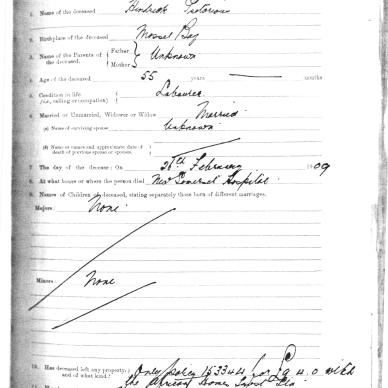 1. Name of the deceased Hendrick Pretorius
2. Birthplace of the deceased Mossel Bay
3. Names of the Parents of the deceased. { Father Mother } Unknown
4. Age of the deceased 55 years — months
5. Condition in life (i.e., calling or occupation) { Labourer
6. Married or Unmarried, Widower or Widow Married
(a) Name of surviving spouse Unknown
(b) Name or names and approximate date of death of previous spouse or spouses.
7. The day of the decease: On 26th February 1909
8. At what house or where the person died New Somerset Hospital
9. Names of Children of deceased, stating separately those born of different marriages.
Majors None
Minors None
10. Has deceased left any property; and of what kind? Only policy 153344 for £9.4.0 with
the African Homes Trust